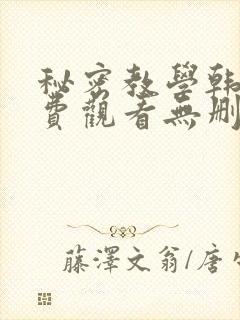 秘密教學韩
費觀看無删
藤澤文翁/唐